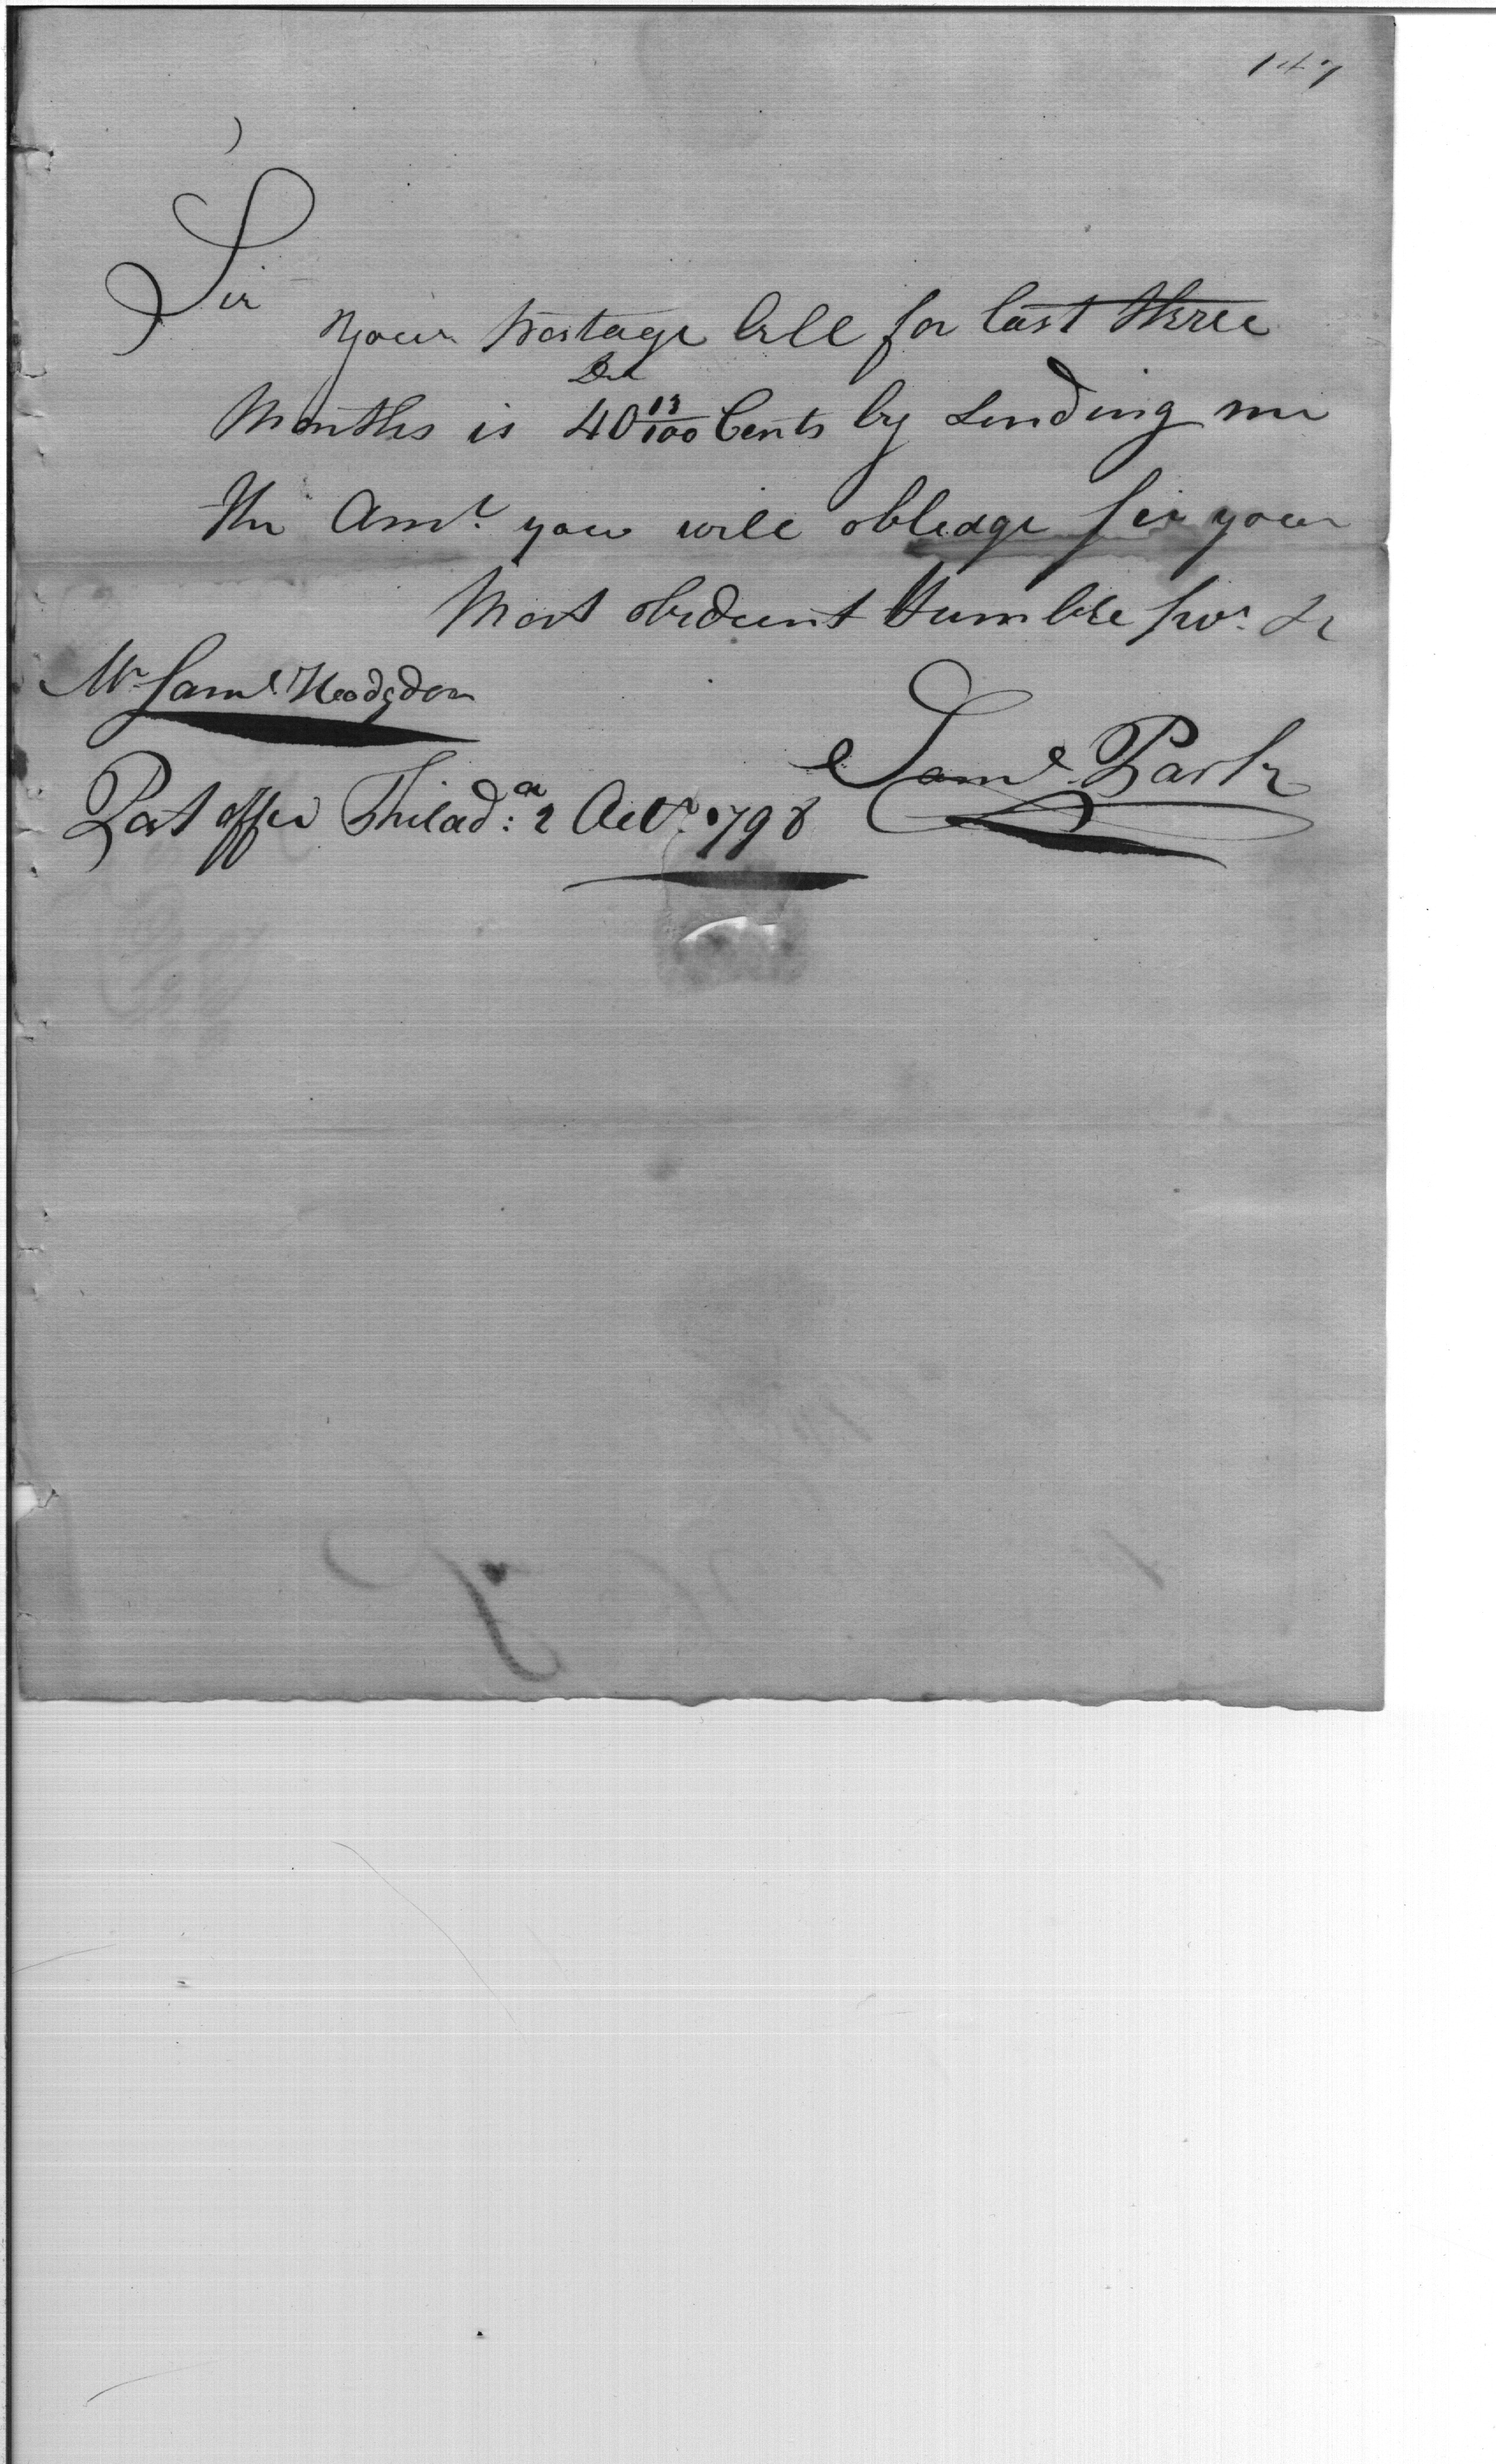 147
Sir
your Postage bill for last three
Dol
Months is 40 13/100 Cents by sending me
the Amt. you will obleage Sir your
Most obedient Humble
Mr Saml Hodgdon
Saml Park
Post office Philada: 2 Octr. 1798